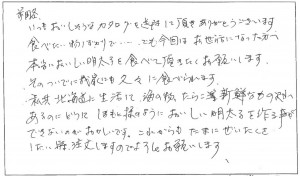 前略
いつもおいしそうなカタログを送付して頂きありがとうございます
食べたい物ばかりで・・・でも今回はお世話になった方へ
本当においしい明太子を食べて頂きたくお願いします。
そのついでに我家にも久々に食べられます。
私共北海道に生活して、海の物たらこ等新鮮なもの沢山
あるのにどうしてほもし様のようにおいしい明太子を作る事が
できないのがおかしいです。これからもたまにぜいたくを
したい時注文しますのでよろしくお願いします